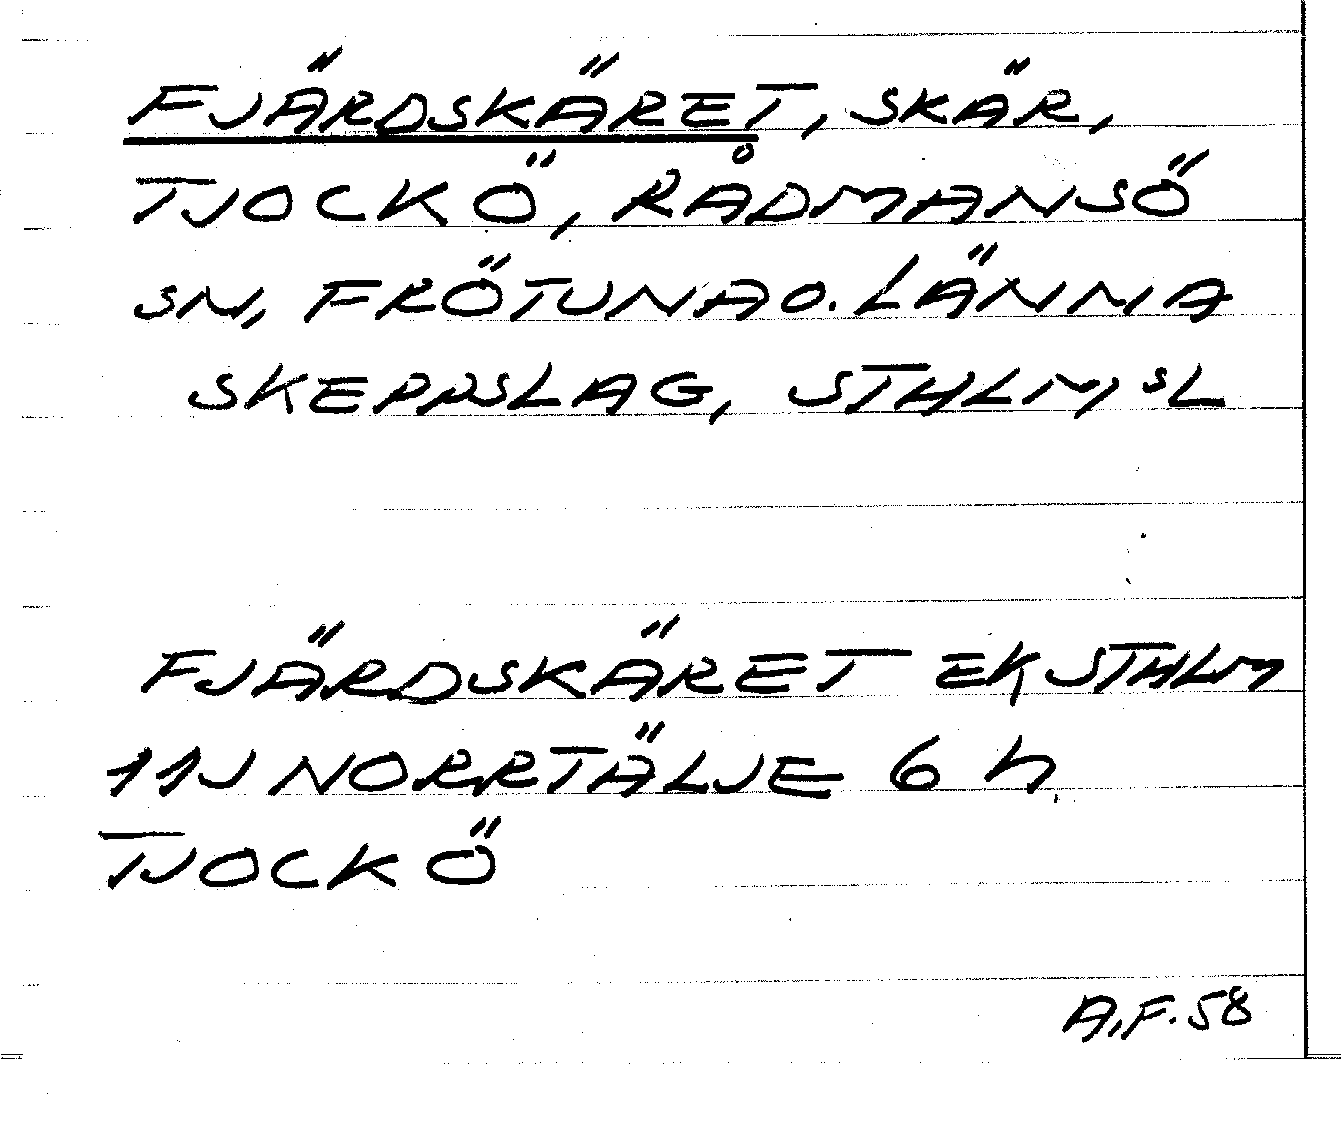 FJÄRDSKÄRET, SKÄR,
TJOCKÖ, RÅDMANSÖ
SN, FRÖTUNA O. LÄNNA
SKEPPSLAG, STHLMS L
FJÄRDSKÄRET EK STHLM
11J NORRTÄLJE 6 h
TJOCKÖ
A.F. 58